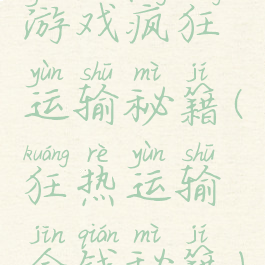 游戏疯狂
yùn shū mì jí
运输秘籍(
kuáng rè yùn shū
狂热运输
jīn qián mì jí
金钱秘籍)